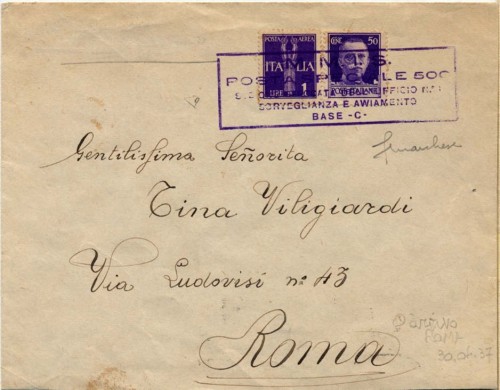 POSTA AEREA
ITALIA
LIRE 1
CENT 50
POSTE ITALIANE
POSTA SPECIALE 500
UFFICIO N.1
SORVEGLIANZA E AVVIAMENTO
BASE -C-
Gentilissima Señorita
Tina Viligiardi
Via Ludovisi nº 43
Roma
arrivo
Roma